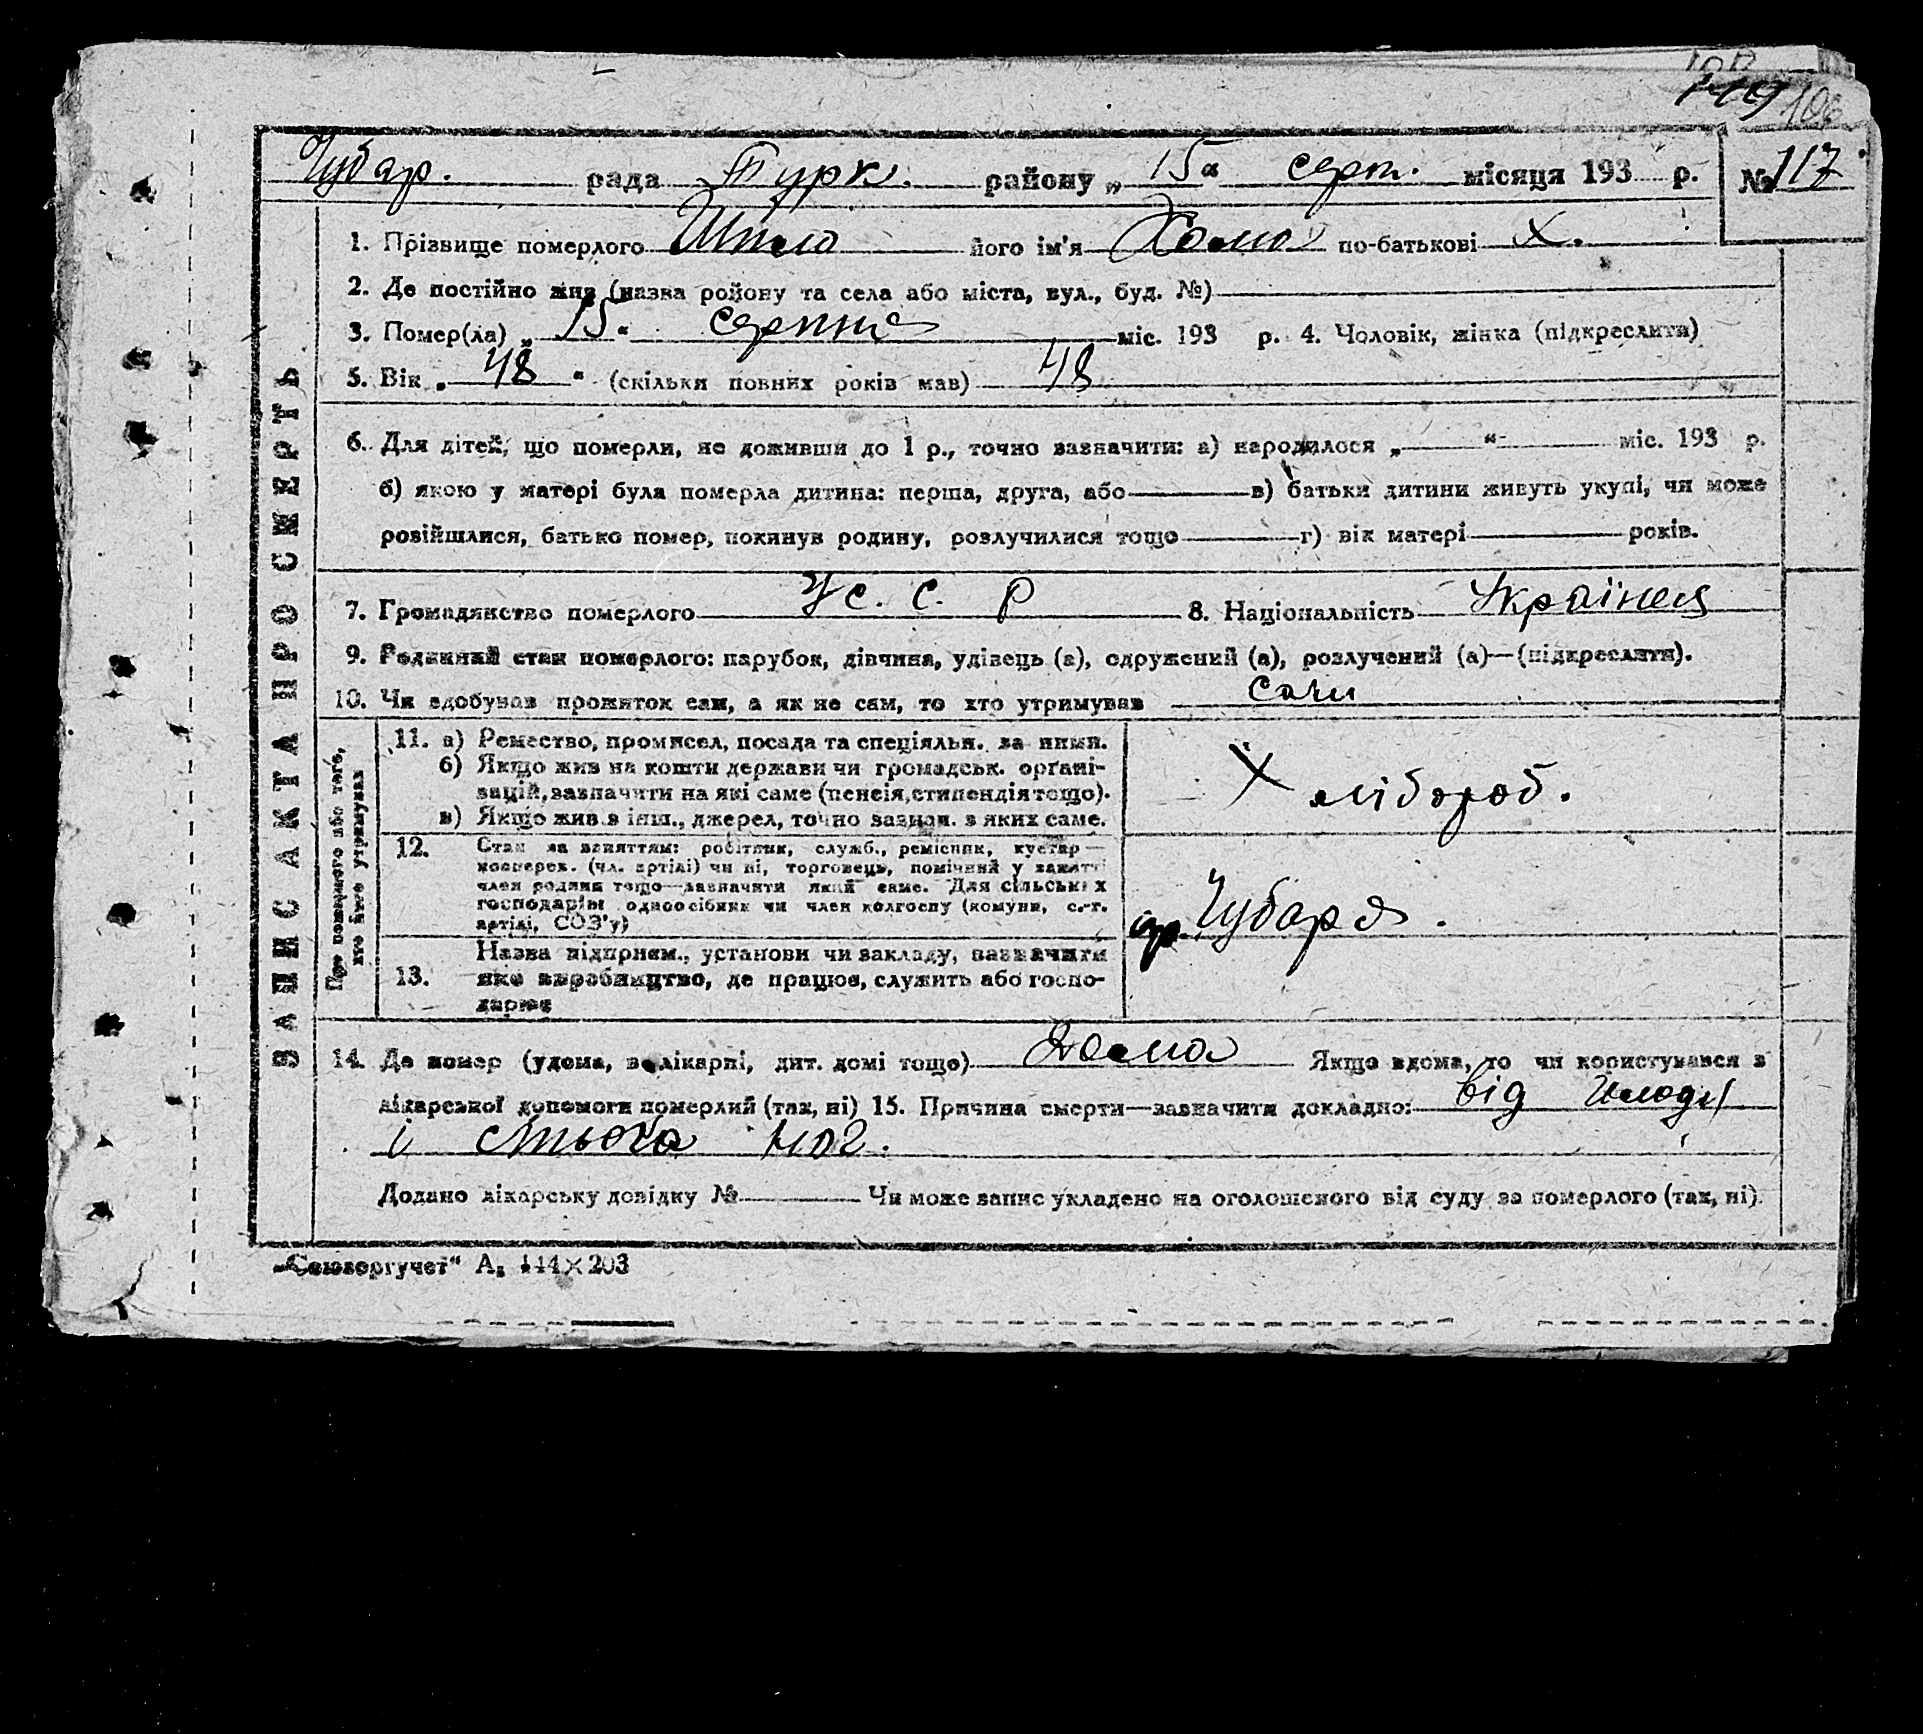 119 106
Чубар. рада Турк. району „ 15 “ серп. місяця 193 р. № 117
1. Прізвище померлого Шило його ім'я Хома по-батькові Х.
2. Де постійно жив (назва району та села або міста, вул., буд. №)
3. Помер(ла) „ 15 “ серпня міс. 193 р. 4. Чоловік, жінка (підкреслити)
5. Вік „ 48 “ (скільки повних років мав) 48
6. Для дітей, що померли, не доживши до 1 р., точно зазначити: а) народилося „ “ міс. 193 р.
б) якою у матері була померла дитина: перша, друга, або в) батьки дитини живуть укупі, чи може
розійшлися, батько помер, покинув родину, розлучилися тощо г) вік матері років.
7. Громадянство померлого У.С.С.Р 8. Національність Українец
9. Родинний стан померлого: парубок, дівчина, удівець (а), одружений (а), розлучений (а)—(підкреслити).
10. Чи здобував прожиток сам, а як не сам, то хто утримував сам
ЗАПИС АКТА ПРО СМЕРТЬ
Про померлого або того, хто його утримував
11. а) Ремество, промисел, посада та спеціяльн. за ними.
б) Якщо жив на кошти держави чи громадськ. орґані-
зацій, зазначити на які саме (пенсія, стипендія тощо).
в) Якщо жив з інш., джерел, точно зазнач. з яких саме.
Хлібороб.
12. Стан за заняттям: робітник, служб., ремісник, кустар—
кооперов. (чл. артілі) чи ні, торговець, помічний у занятті
член родини тощо—зазначити який саме. Для сільських
господарів одноосібник чи член колгоспу (комуни, с.-г.
артілі, СОЗ'у)
Чубаря.
13. Назва підприєм., установи чи закладу, зазначити
яке виробництво, де працює, служить або госпо-
дарює
14. Де помер (удома, в лікарні, дит. домі тощо) Дома Якщо вдома, то чи користувався з
лікарської допомоги померлий (так, ні) 15. Причина смерти—зазначити докладно: від
і ног.
Додано лікарську довідку № Чи може запис укладено на оголошеного від суду за померлого (так, ні).
„Союзоргучет“ А₅ 144×203